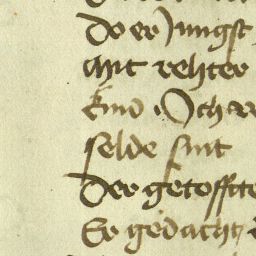 do er Jungst
mit rehter
kind Och
selde sint
Der getofft
Er gedacht